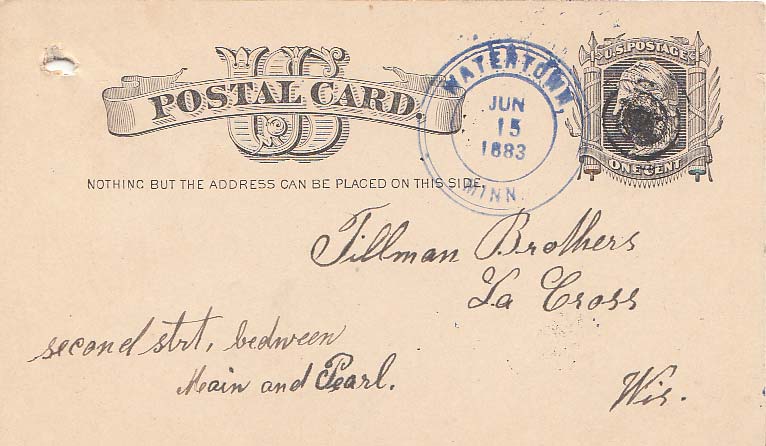 US
POSTAL CARD.
NOTHING BUT THE ADDRESS CAN BE PLACED ON THIS SIDE.
WATERTOWN,
JUN
15
1883
MINN.
U.S. POSTAGE
ONE CENT
Tillman Brothers
La Cross
second strt, bedween
Main and Pearl.
Wis.